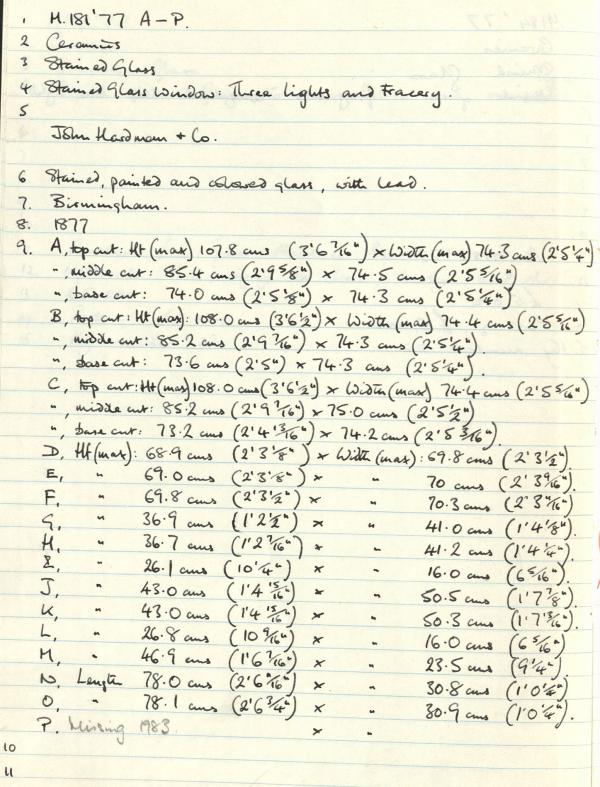 1 M.181'77 A-P.
2 Ceramics
3 Stained Glass
4 Stained Glass Window: Three Lights and Tracery.
5
John Hardman + Co.
6 Stained, painted and coloured glass, with lead.
7. Birmingham.
8. 1877
9. A, top cut: Ht (max) 107.8 cms (3'6 7/16") x Width (max) 74.3 cms (2'5 1/4")
", middle cut: 85.4 cms (2'9 5/8") x 74.5 cms (2'5 5/16")
", base cut: 74.0 cms (2'5 1/8") x 74.3 cms (2'5 1/4")
B, top cut: Ht (max): 108.0 cms (3'6 1/2") x Width (max) 74.4 cms (2'5 5/16")
", middle cut: 85.2 cms (2'9 7/16") x 74.3 cms (2'5 1/4").
", base cut: 73.6 cms (2'5") x 74.3 cms (2'5 1/4").
C, top cut: Ht (max) 108.0 cms (3'6 1/2") x Width (max) 74.4 cms (2'5 5/16")
", middle cut: 85.2 cms (2'9 7/16") x 75.0 cms (2'5 1/2")
", base cut: 73.2 cms (2'4 13/16") x 74.2 cms (2'5 3/16").
D, Ht (max): 68.9 cms (2'3 1/8") x Width (max): 69.8 cms (2'3 1/2").
E, " 69.0 cms (2'3 1/8") x " 70 cms (2'3 9/16").
F, " 69.8 cms (2'3 1/2") x " 70.3 cms
G, " 36.9 cms (1'2 1/2") x " 41.0 cms (1'4 1/8").
H, " 36.7 cms (1'2 7/16") x " 41.2 cms (1'4 1/4").
I, " 26.1 cms (10 1/4") x " 16.0 cms (6 5/16").
J, " 43.0 cms (1'4 15/16") x " 50.5 cms (1'7 7/8").
K, " 43.0 cms (1'4 15/16") x " 50.3 cms (1'7 13/16").
L, " 26.8 cms (10 9/16") x " 16.0 cms (6 5/16")
M, " 46.9 cms (1'6 7/16") x " 23.5 cms (9 1/4")
N, Length 78.0 cms x " 30.8 cms
O, " 78.1 cms (2'6 3/4") x " 30.9 cms (1'0 1/4").
P. Missing 1983 x "
10
11